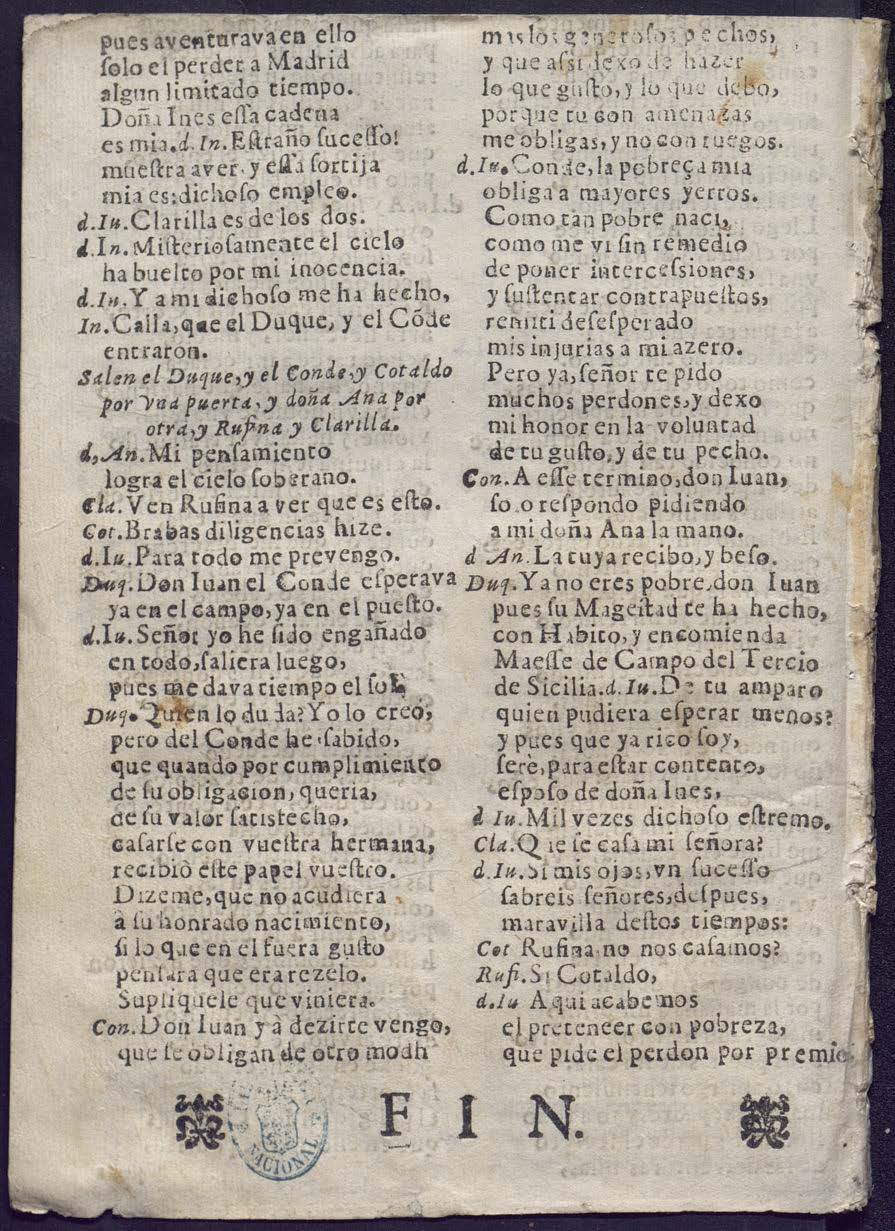 pues aventurava en ello
ſolo el perder a Madrid
algun limitado tiempo.
Doña Ines eſſa cadena
es mia. d. In. Eſtraño ſuceſſo!
mueſtra aver, y eſſa ſortija
mia es: dichoſo empleo.
d. Iu. Clarilla es de los dos.
d. In. Miſterioſamente el cielo
ha buelto por mi inocencia.
d. Iu. Y a mi dichoſo me ha hecho,
In. Calla, que el Duque, y el Cõde
entraron.
Salen el Duque, y el Conde, y Cotaldo
por vna puerta, y doña Ana por
otra, y Rufina y Clarilla.
d, An. Mi penſamiento
logra el cielo ſoberano.
Cla. Ven Rufina a ver que es eſto.
Cot. Brabas diligencias hize.
d. Iu. Para todo me prevengo.
Duq. Don Iuan el Conde eſperava
ya en el campo, ya en el pueſto.
d. Iu. Señor yo he ſido engañado
en todo, ſaliera luego,
pues me dava tiempo el ſol
Duq. Quien lo duda? Yo lo creo,
pero del Conde he ſabido,
que quando por cumplimiento
de ſu obligacion, queria,
de ſu valor ſatisfecho,
caſarſe con vueſtra hermana,
recibiò eſte papel vueſtro.
Dizeme, que no acudiera
à ſu honrado nacimiento,
ſi lo que en el fuera guſto
penſara que era rezelo.
Supliquele que viniera.
Con. Don Iuan yà à dezirte vengo,
que ſe obligan de otro modh
mis los generoſos pechos,
y que aſsi dexo de hazer
lo que guſto, y lo que debo,
porque tu con amenazas
me obligas, y no con ruegos.
d. Iu. Conde, la pobreça mia
obliga a mayores yerros.
Como tan pobre naci,
como me vi ſin remedio
de poner interceſsiones,
y ſuſtentar contrapueſtos,
remiti deſeſperado
mis injurias a mi azero.
Pero ya, ſeñor te pido
muchos perdones, y dexo
mi honor en la voluntad
de tu guſto, y de tu pecho.
Con. A eſſe termino, don Iuan,
ſo o reſpondo pidiendo
a mi doña Ana la mano.
d An. La tuya recibo, y beſo.
Duq. Ya no eres pobre, don Iuan
pues ſu Mageſtad te ha hecho,
con Habito, y encomienda
Maeſſe de Campo del Tercio
de Sicilia. d. Iu. De tu amparo
quien pudiera eſperar menos?
y pues que ya rico ſoy,
ſerè, para eſtar contento,
eſpoſo de doña Ines,
d Iu. Mil vezes dichoſo eſtremo.
Cla. Q ie ſe caſa mi ſeñora?
d. Iu. Si mis ojos, vn ſuceſſo
ſabreis ſeñores, deſpues,
maravilla deſtos tiempos:
Cot Rufina no nos caſamos?
Rufi. Si Cotaldo,
d. Iu Aqui acabemos
el preteneer con pobreza,
que pide el perdon por premio
FIN.
NACIONAL